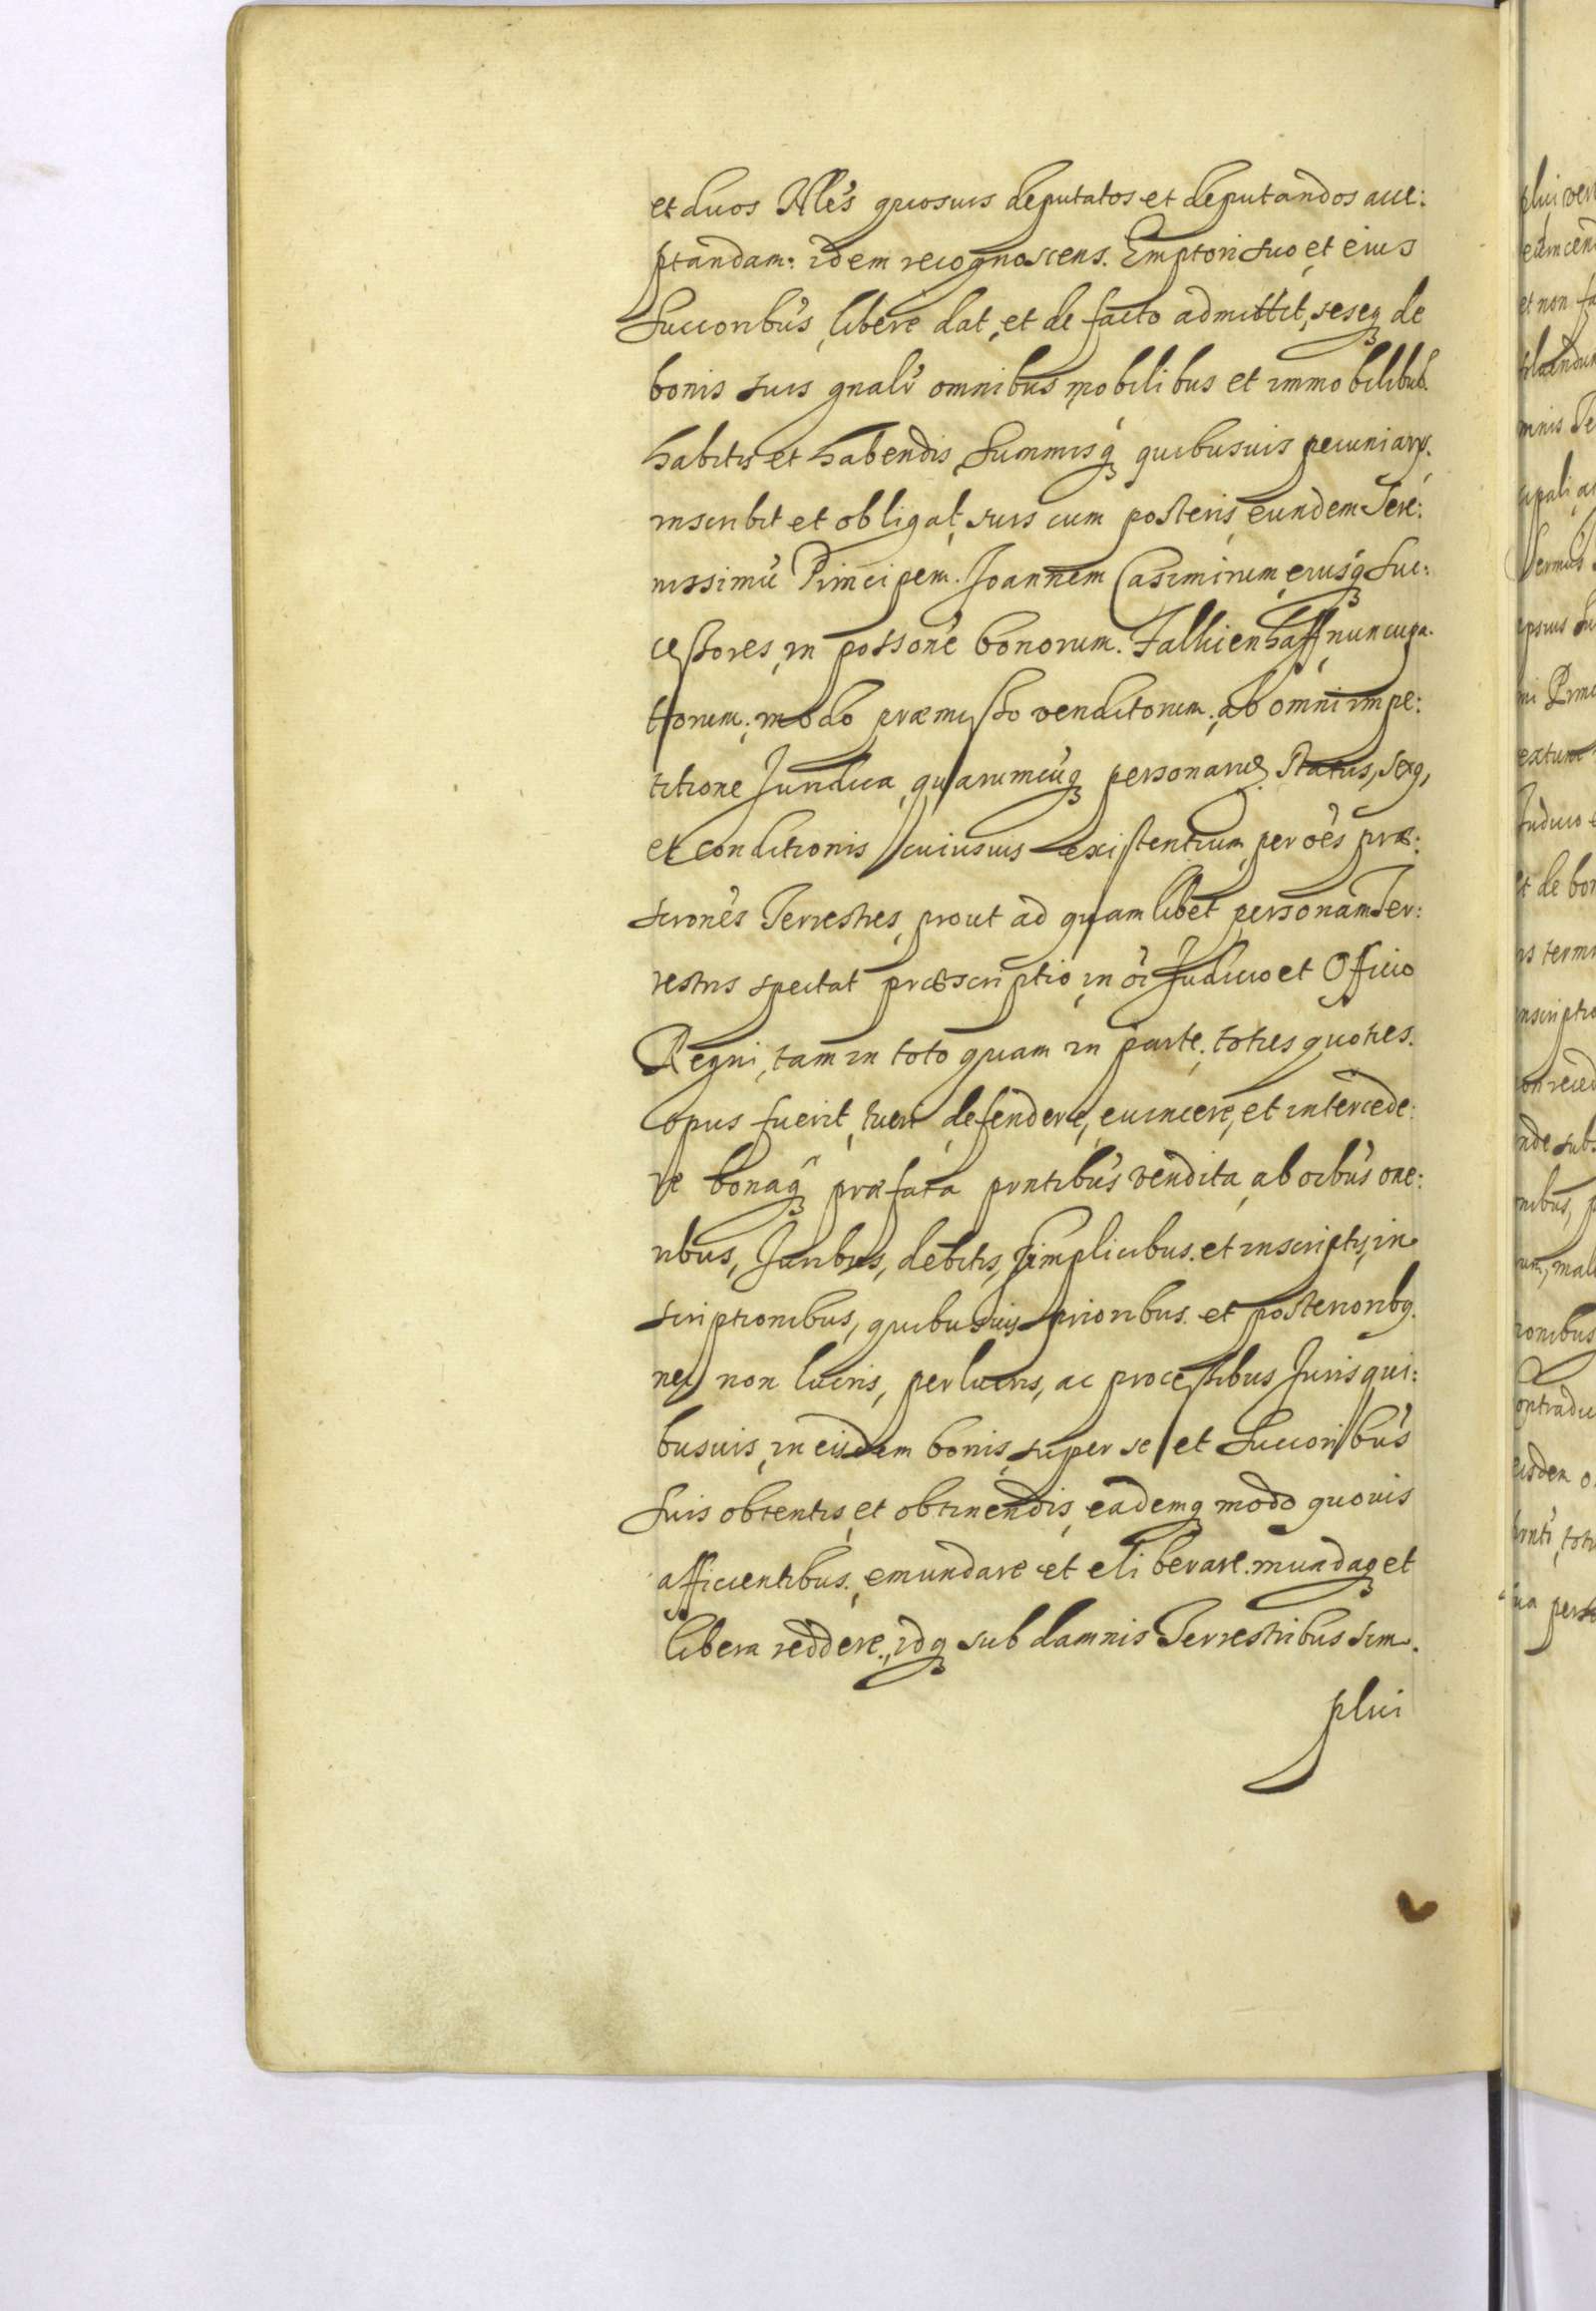 et duos Nlēs quosuis deputatos et deputandos acce:
ptandam: idem recognoscens. Emptori suo, et eius
Succoribus, libere dat, et de facto admittit, seseq; de
bonis suis gnalr omnibus mobilibus et immobilibus.
habitis et habendis, Summisq; quibusuis pecuniarÿs.
inscribit et obligat, suis cum posteris, eundem Sere:
nissimū Principem. Joannem Casimirum, eiusq; Suc:
cessores, in possone bonorum. Falkienhaff, nuncupa.
torum; modo præmisso venditorum; ab omni impe:
titione Juridica, quarumcuq; personarum Status, sexq,
et conditionis cuiusuis existentium, per oēs præ:
sciones Terrestres, prout ad quamlibet personam Ter:
restris spectat præscriptio, in oī Judicio et Officio
Regni, tam in toto quam in parte; toties quoties.
opus fuerit, tueri, defendere, euincere, et intercede:
re bonaq; præfata pnntibus vendita, ab oibus one:
ribus, Juribus, debitis, simplicibus. et inscriptis, in
scriptionibus, quibusuis prioribus. et posterioribq.
nec non lucris, perlucris, ac processibus Juris qui:
busuis, in eisdem bonis, super se et Succoribus
Suis obtentis, et obtinendis, eademq; modo quouis
afficientibus., emundare et eliberare. mundaq; et
libera reddere., idq; sub damnis Terrestribus sim.
plici